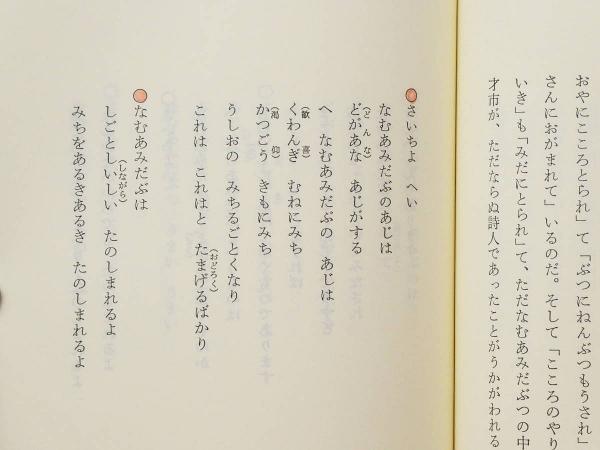 おやにこころとられ」て「ぶつにねんぶつもうされ」
さんにおがまれて」いるのだ。そして「こころのやり
いき」も「みだにとられ」て、ただなむあみだぶつの中
才市が、ただならぬ詩人であったことがうかがわれる
さいちよ へい
なむあみだぶのあじは
どがあな(どんな) あじがする
へ なむあみだぶの あじは
くわんぎ(歓喜) むねにみち
かつごう(渇仰) きもにみち
うしおの みちるごとくなり
これは これはと たまげる(おどろく)ばかり
なむあみだぶは
しごとしいしい(しながら) たのしまれるよ
みちをあるきあるき たのしまれるよ